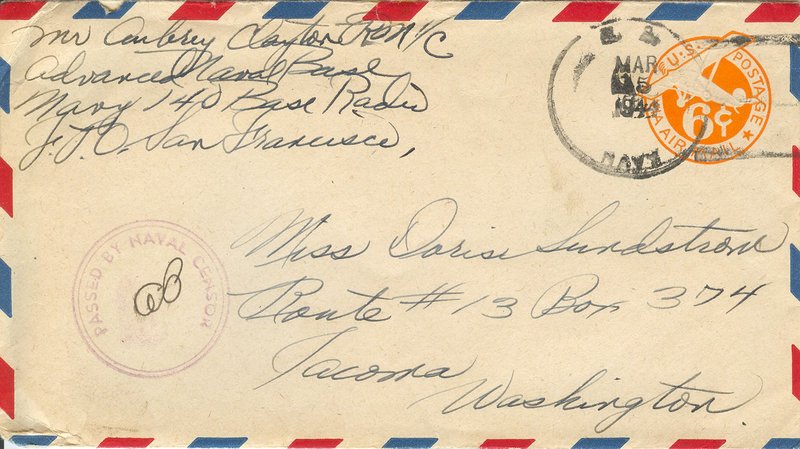 Mr Aubrey Clayton RM 1/C
Advanced Naval Base
Navy 140 Base Radio
F.P.O. San Francisco,
MAR
5
194
NAVY
U.S. POSTAGE
6¢
VIA AIR MAIL
PASSED BY NAVAL CENSOR
Miss Doris Sundstrom
Route # 13 Box 374
Tacoma
Washington.